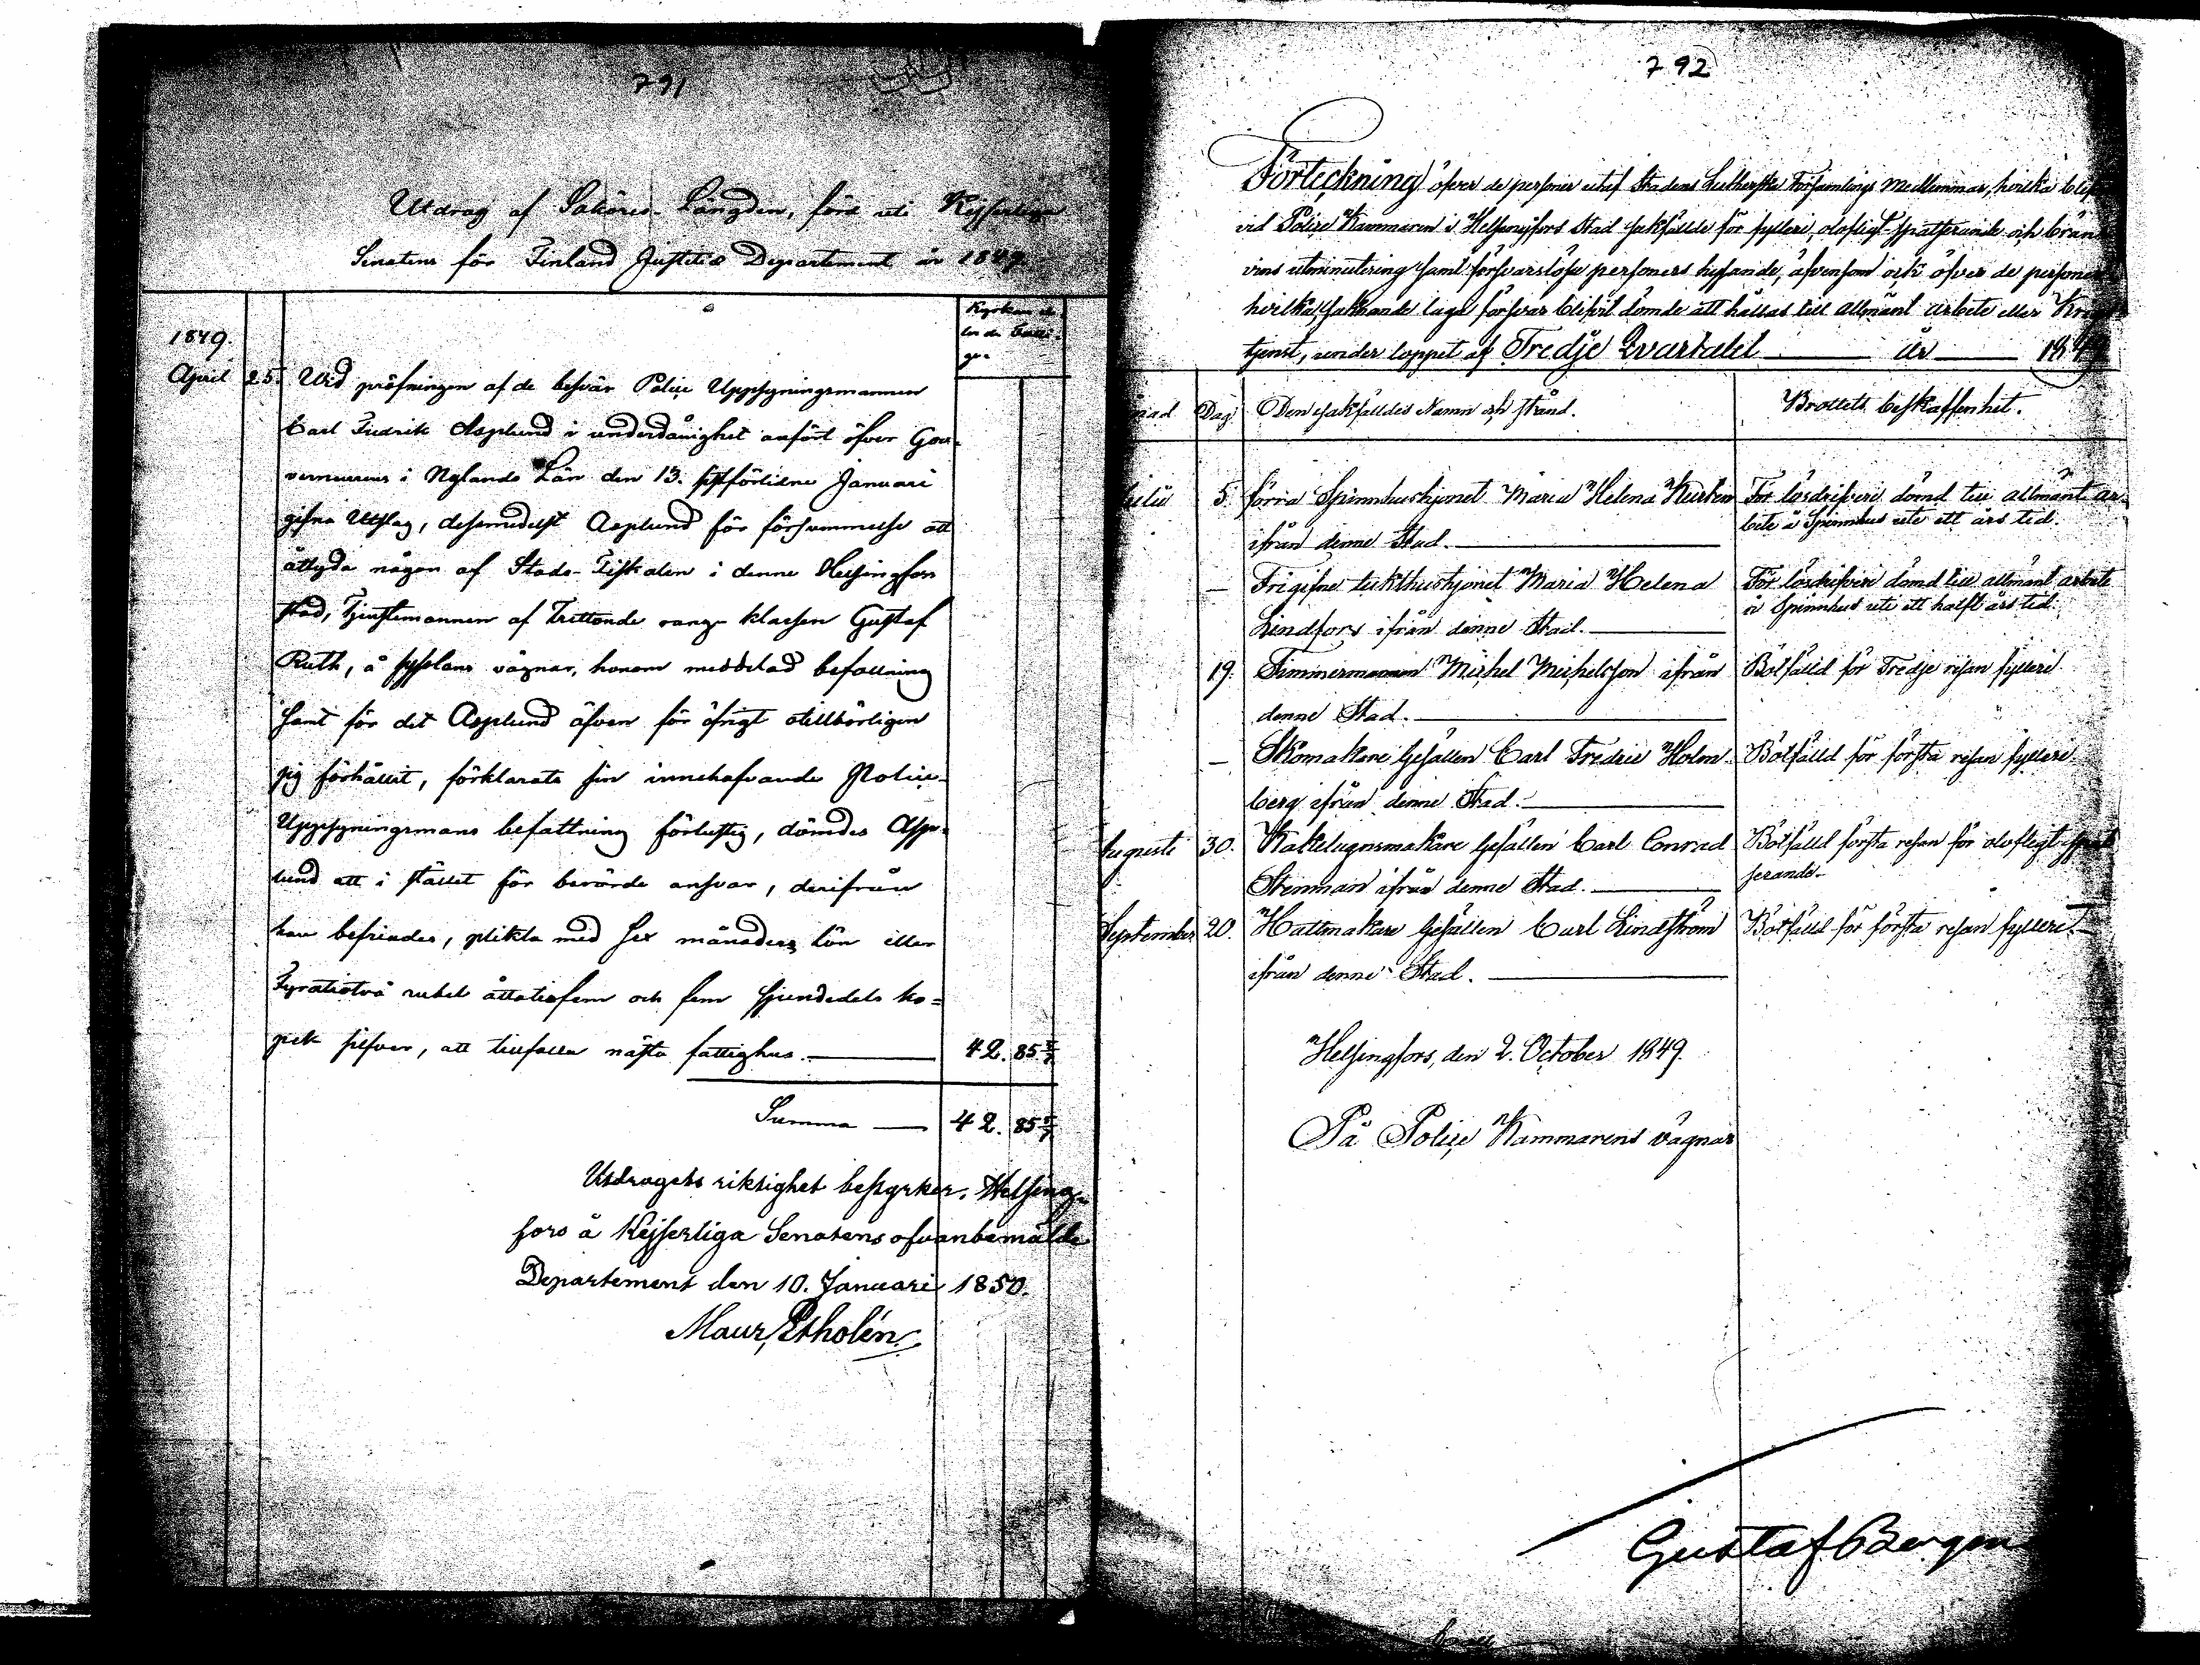 791
Utdrag af Saköres-Längden, förd uti Kejserliga
Senatens för Finland Justitiæ Departement år 1849.
Kyrkan el-
ler de Fatti-
ga.
1849.
April 25. Vid pröfningen af de besvär Police Uppsyningsmannen
Carl Fredrik Asplund i underdånighet anfört öfver Gou-
verneurens i Nylands Län den 13. sistförlidne Januari
gifna Utslag, dessmedelst Asplund för försummelse att
åtlyda någon af Stads-Fiskalen i denne Helsingfors
stad, Tjenstemannen af trettonde rangs klassen Gustaf
Ruth, å sysslans vägnar, honom meddelad befallning
samt för det Asplund äfven för öfrigt otillbörligen
sig förhållit, förklarats sin innehafvande Police-
Uppsyningsmans befattning förlustig, dömdes Asp-
lund att i stället för berörde ansvar, derifrån
han befriades, plikta med sex månaders lön eller
Fyratiotvå rubel åttatiofem och fem sjundedels ko-
pek silfver, att tillfalla nästa fattighus. 42. 85 5/7
Summa 42. 85 5/7
Utdragets riktighet bestyrker. Helsing-
fors å Kejserliga Senatens ofvanbemälde
Departement den 10. Januari 1850.
Maur, Etholén.
792
Förteckning öfver de personer utaf Stadens Lutherska Församlings Medlemmar, hvilka blif
vid Police Kammaren i Helsingfors Stad sakfällde för fylleri, olofligt spatserande och brän
vins utminutering samt försvarslöse personers hysande, äfvensom ock öfver de personer
hvilka saknande laga försvar blifvit dömde att hållas till allmänt arbete eller Kro
tjenst, under loppet af Tredje Qvartalet år 1849
nad Dag Den sakfälldes Namn och stånd. Brottets beskaffenhet.
Julii 5. förra Spinnhushjonet Maria Helena Kurken För lösdrifveri dömd till allmänt ar-
bete å Spinnhus uti ett års tid.
ifrån denne Stad.
— Frigifne tukthushjonet Maria Helena För lösdrifveri dömd till allmänt arbete
å Spinnhus uti ett halft års tid.
Lindfors ifrån denne Stad.
19. Timmermannen Michel Michelsson ifrån Bötfälld för Tredje resan fylleri.
denne Stad.
— Skomakare Gesällen Carl Fredric Holm- Bötfälld för första resan fylleri.
berg ifrån denne Stad.
Augusti 30. Kakelugnsmakare Gesällen Carl Conrad Bötfälld första resan för olofligt spat
serande.
Stenman ifrån denne Stad.
September 20. Hattmakare Gesällen Carl Lindström Bötfälld för första resan fylleri.
ifrån denne Stad.
Helsingfors, den 2. October 1849.
På Police Kammarens vägnar
Gustaf Bergen